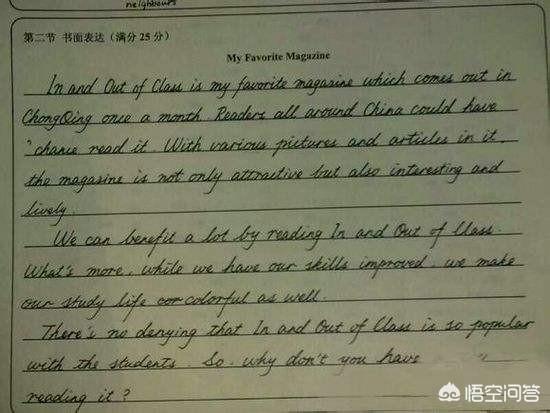 neighbours
第二节 书面表达（满分 25 分）
My Favorite Magazine
In and Out of Class is my favorite magazine which comes out in
ChongQing once a month. Readers all around China could have
chance read it. With various pictures and articles in it,
the magazine is not only attractive but also interesting and
lively.
We can benefit a lot by reading In and Out of Class.
What's more, while we have our skills improved, we make
our study life cor colorful as well.
There's no denying that In and Out of Class is so popular
with the students. So, why don't you have
reading it?
悟空问答